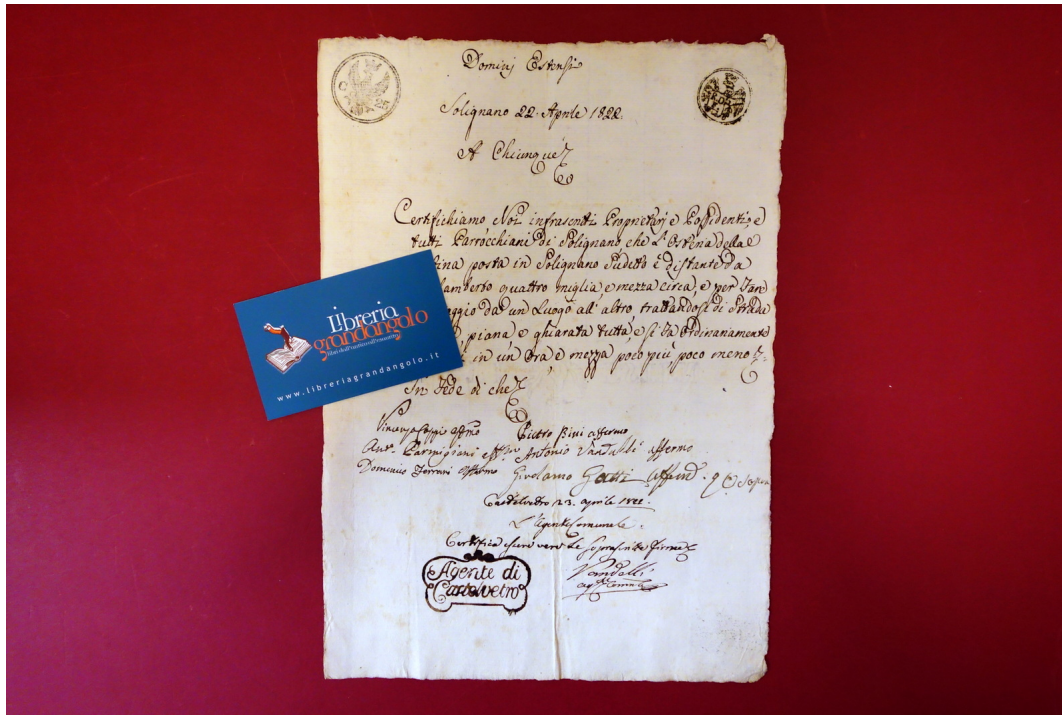 Dominj Estensi
Solignano 22. Aprile 1822
A Chiunque
Certifichiamo Noi infrascritti Proprietarj e Possidenti, e
tutti Parrocchiani di Solignano, che l'Osteria della
tina posta in Solignano Sudetto è distante da
lamberto quattro miglia e mezza circa, e per
aggio da un Luogo all' altro trattandosi di Strada
piana e ghiarata tutta, e si fa Ordinariamente
in un' Ora e mezza poco più, poco meno
In Fede di che
Pietro Bini affermo
Parmigiani Antonio Vandelli affermo
Domenico Ferrari affermo Girolamo Gatti
Castelvetro 23. aprile 1822.
L'Agente Comunale
Certifica essere vere le soprascritte firme
Vandelli
Agente di
Castelvetro
Libreria
grandangolo
www.libreriagrandangolo.it